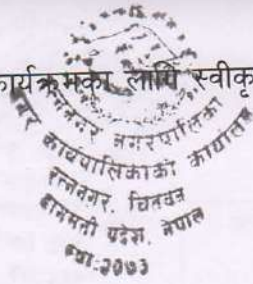 कार्यक्रमका लागि स्वीकृ
रत्ननगर नगरपालिका
नगर कार्यपालिकाको कार्यालय
रत्ननगर, चितवन
बागमती प्रदेश, नेपाल
स्था.२०७३